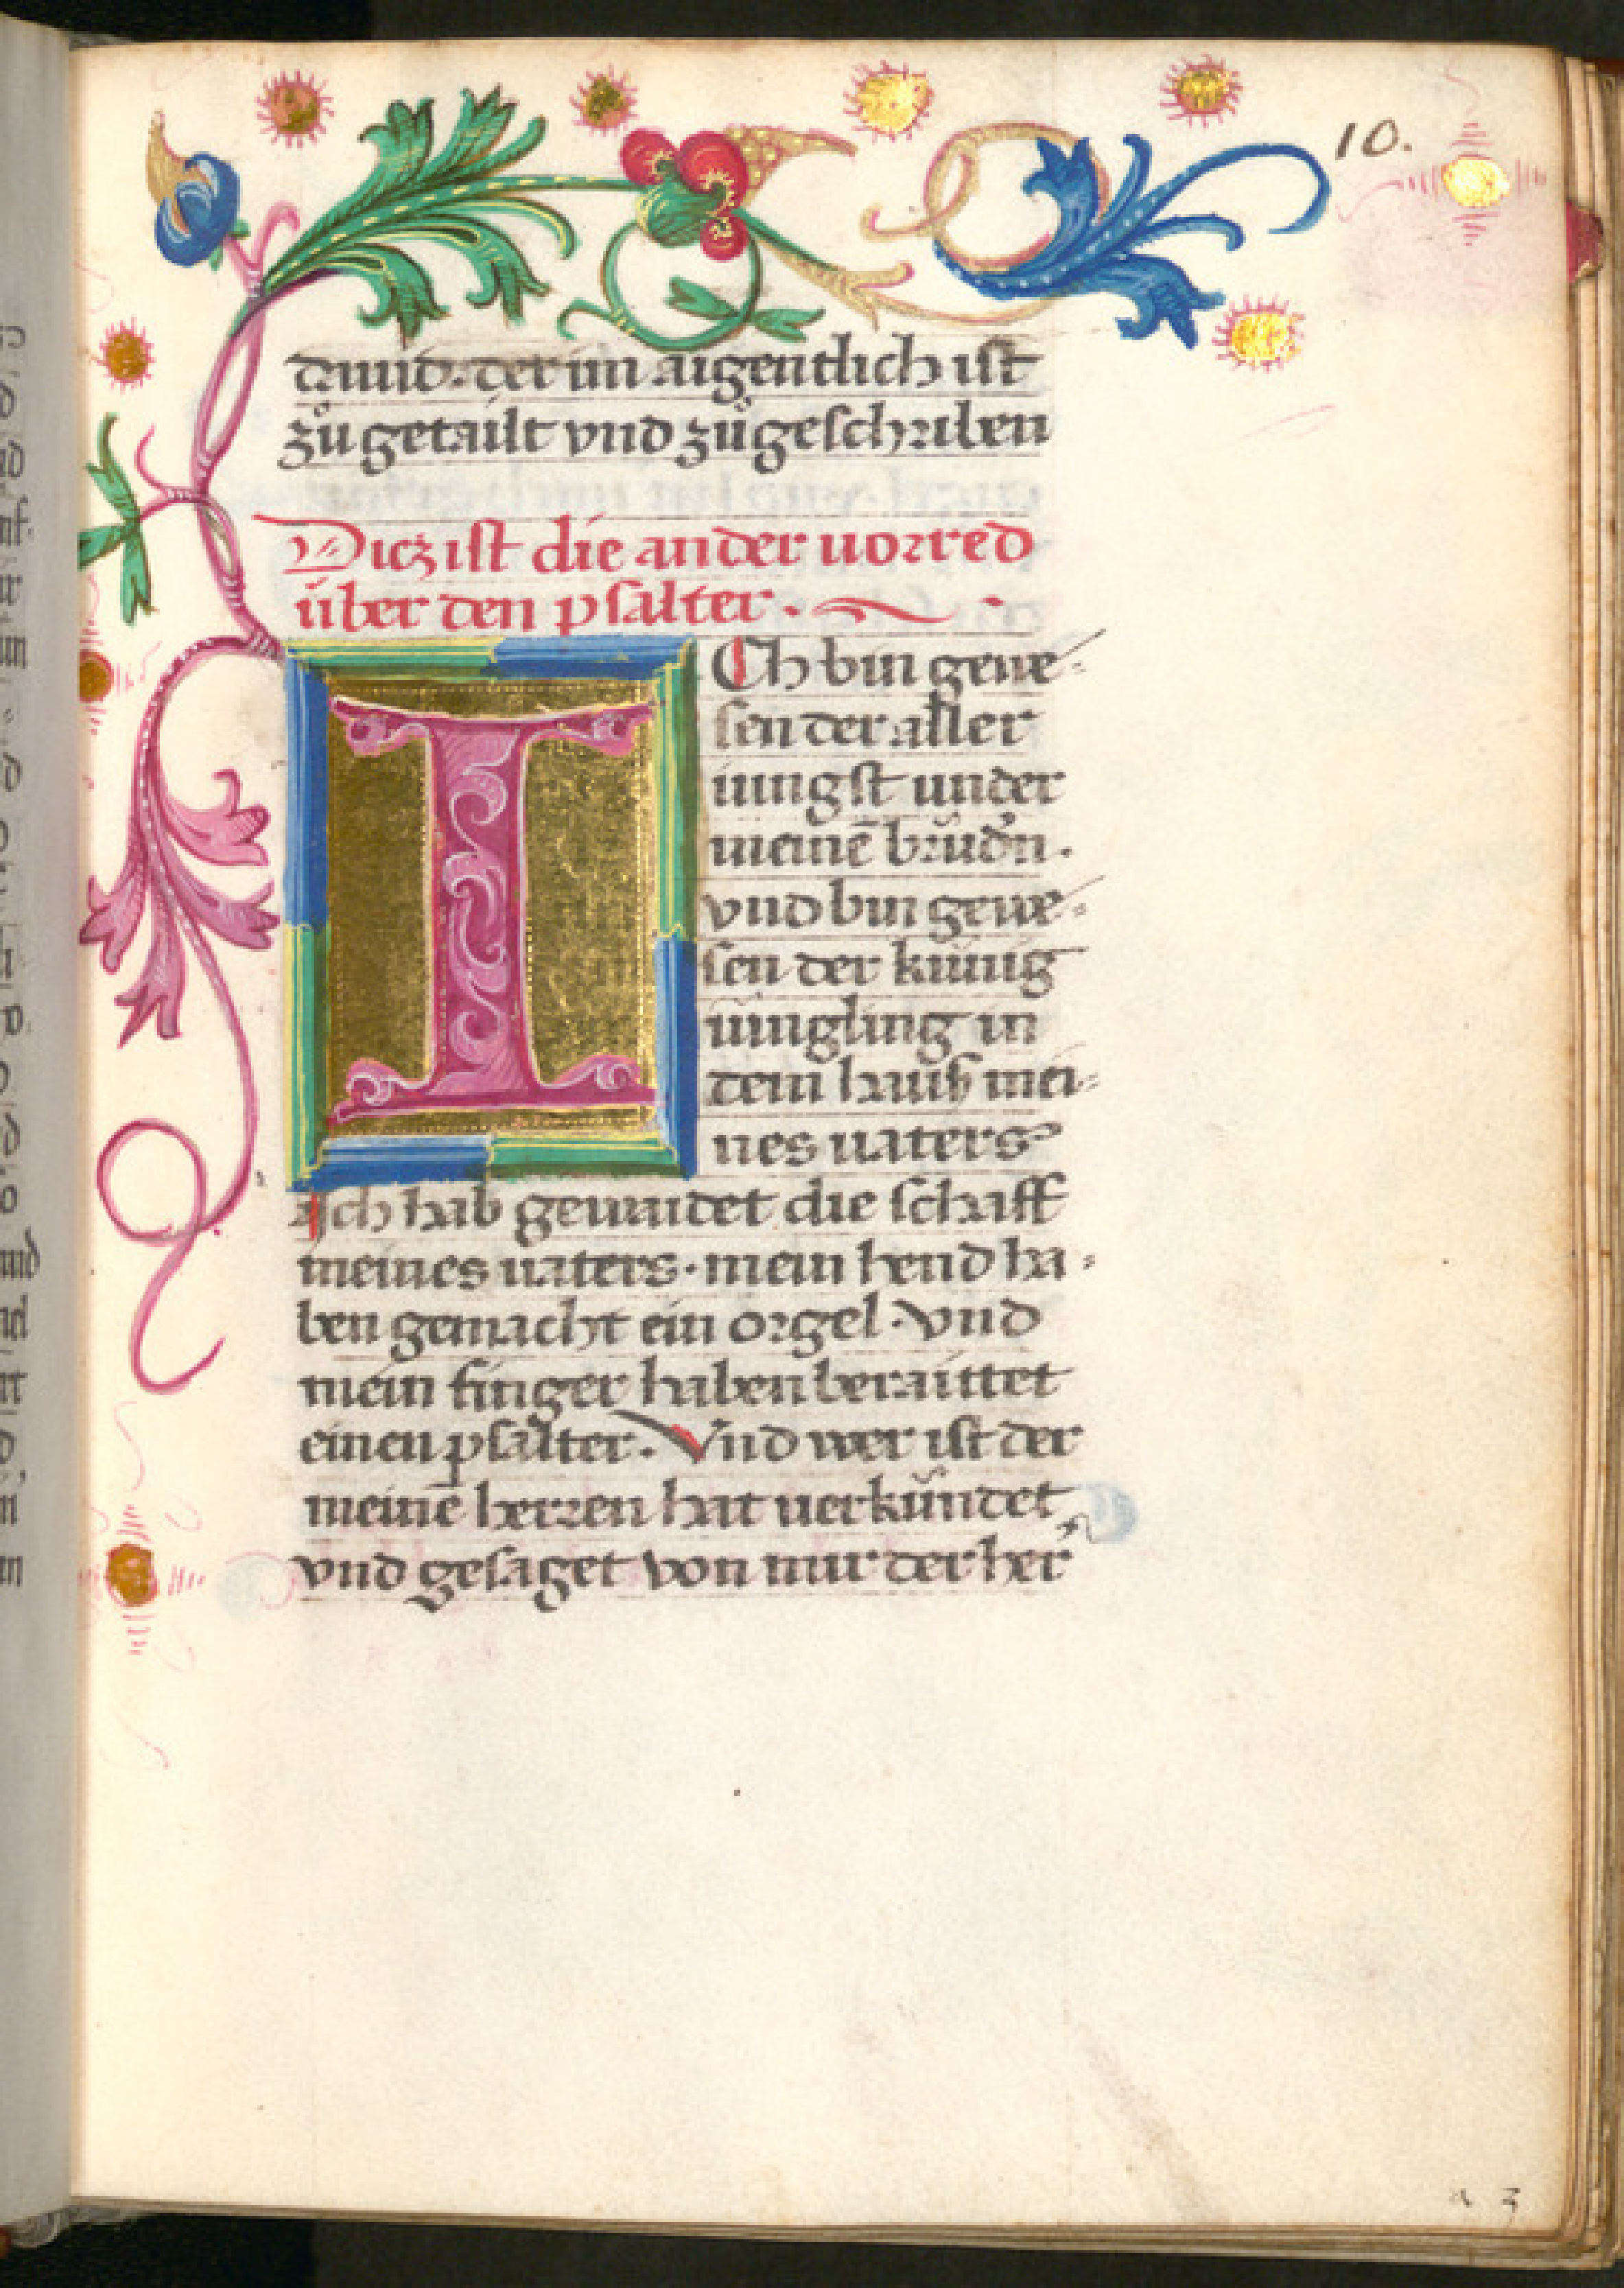 10.
dauid. der im aigentlich ist
zůgetailt vnd zůgeschriben
Dicz ist die ander uorred
über den psalter.
ICh bin gewe-
sen der aller
iungst under
meinē brüdn.
vnd bin gewe-
sen der künig
iüngling in
dem hauß mei-
nes uaters
Ich hab gewaidet die schaff
meines uaters. mein hend ha-
ben gemacht ein orgel. vnd
mein finger haben beraittet
einen psalter. Vnd wer ist der
meinē herren hat uerkündet
vnd gesaget von mir der her
a 3